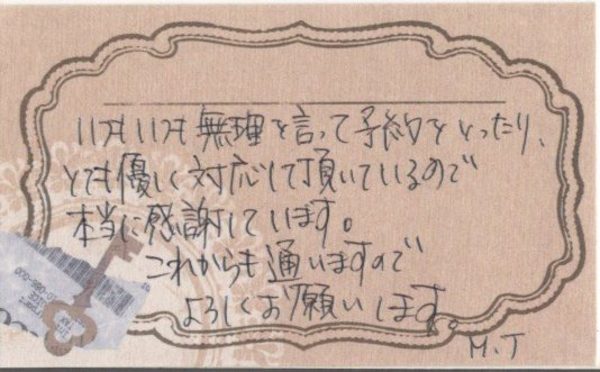 いつもいつも無理を言って予約をとったり、
とても優しく対応して頂いているので
本当に感謝しています。
これからも通いますので
よろしくお願いします。
M.T